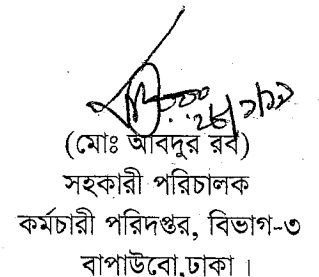 (মোঃ আবদুর রব)
সহকারী পরিচালক
কর্মচারী পরিদপ্তর, বিভাগ-৩
বাপাউবো,ঢাকা ।